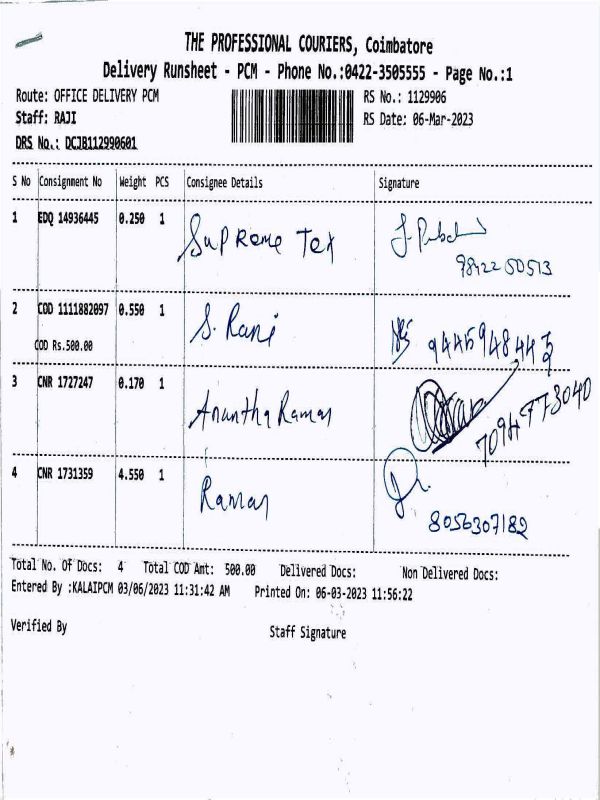 THE PROFESSIONAL COURIERS, Coimbatore
Delivery Runsheet - PCM - Phone No.:0422-3505555 - Page No.:1
Route: OFFICE DELIVERY PCM RS No.: 1129906
Staff: RAJI RS Date: 06-Mar-2023
DRS No.: DCJB112990601
S No Consignment No Weight PCS Consignee Details Signature
1 EDQ 14936445 0.250 1 Supreme Tex
98422 50513
2 COD 1111882097 0.550 1 S. Rani 9445948443
COD Rs.500.00
3 CNR 1727247 0.170 1 Anantha Raman
7094773040
4 CNR 1731359 4.550 1 Raman
8056307182
Total No. Of Docs: 4 Total COD Amt: 500.00 Delivered Docs: Non Delivered Docs:
Entered By :KALAIPCM 03/06/2023 11:31:42 AM Printed On: 06-03-2023 11:56:22
Verified By Staff Signature